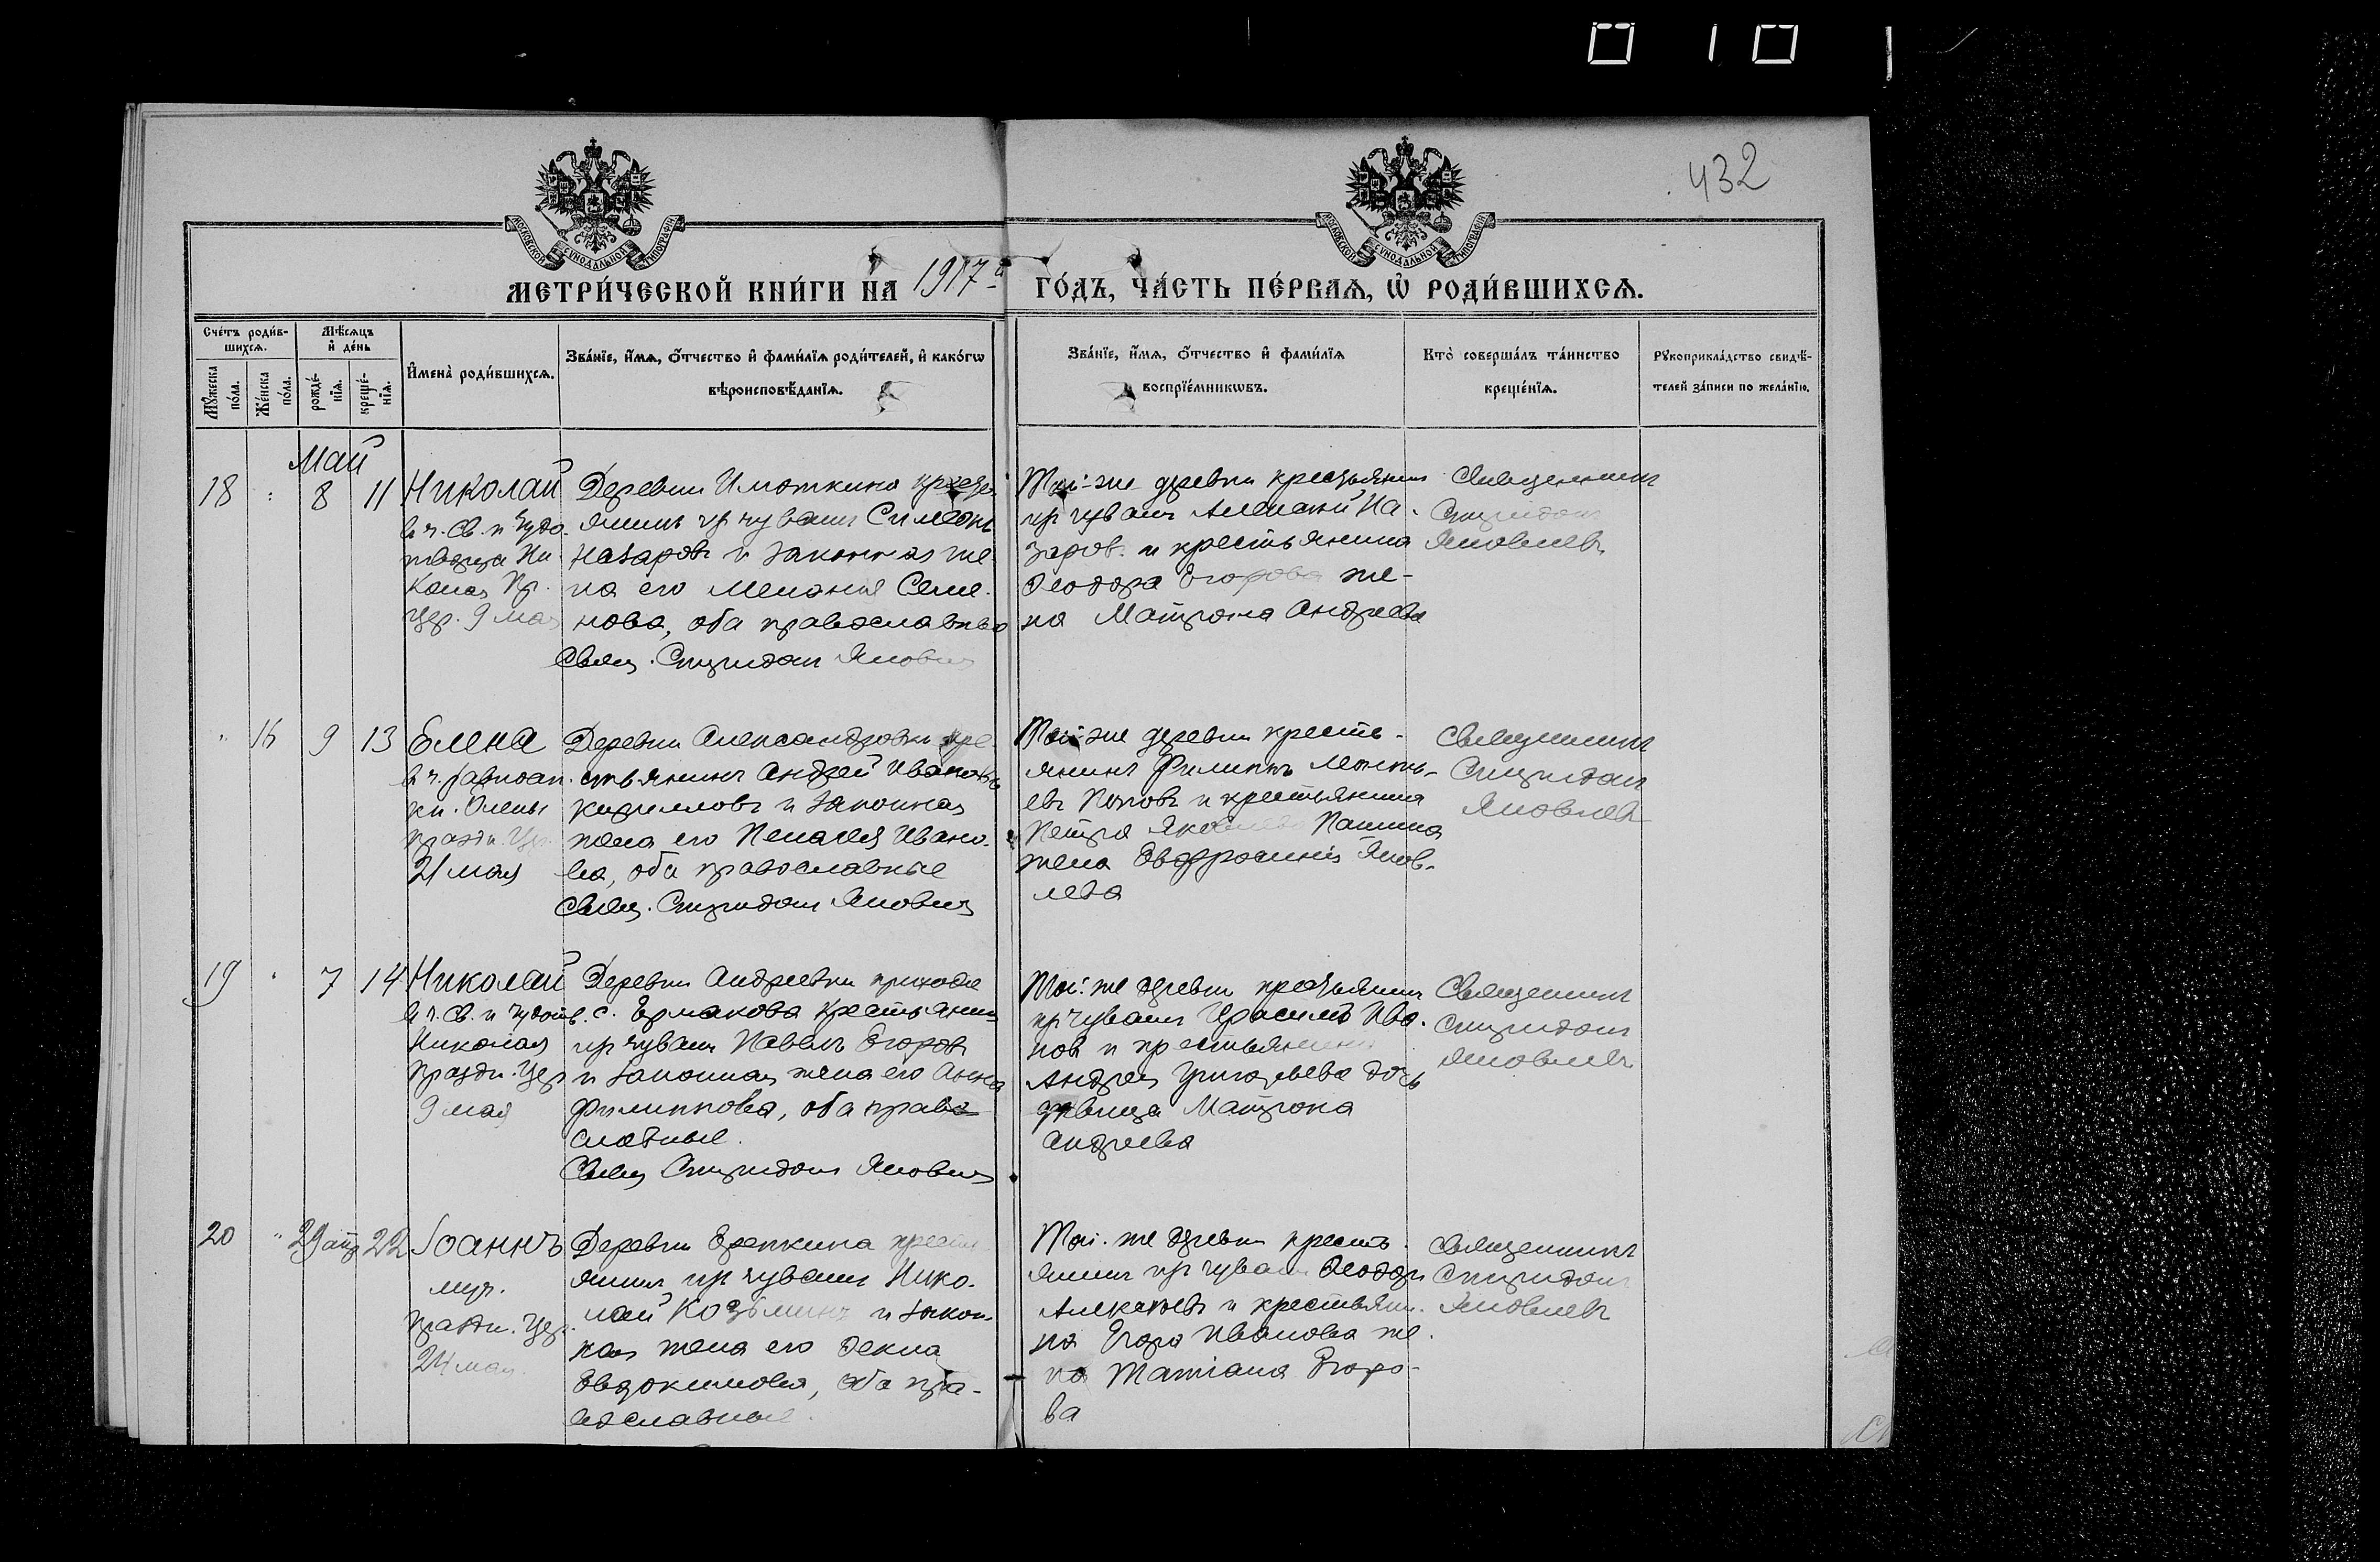 432
МОСКОВСКОЙ СѴНОДАЛЬНОЙ ТИПОГРАФІИ
МОСКОВСКОЙ СѴНОДАЛЬНОЙ ТИПОГРАФІИ
МЕТРИ́ЧЕСКОЙ КНИ́ГИ НА 1917й ГО́ДЪ, ЧА́СТЬ ПЕ́РВАѦ, Ѡ҆ РОДИ́ВШИХСѦ.
Сче́тъ роди́в-
шихсѧ.
Мѣ́сѧцъ
и҆ де́нь
Мꙋ́жеска
по́ла.
Же́нска
по́ла.
рожде́-
нїѧ.
креще́-
нїѧ.
И҆мена̀ роди́вшихсѧ.
Зва́нїе, и҆́мѧ, ѻ҆́тчество и҆ фами́лїѧ роди́телей, и҆ како́гѡ
вѣроисповѣ́данїѧ.
Зва́нїе, и҆́мѧ, ѻ҆́тчество и҆ фами́лїѧ
воспрїе́мникѡвъ.
Кто̀ соверша́лъ та́инство
креще́нїѧ.
Рꙋкоприкла́дство свидѣ́-
телей за́писи по жела́нїю.
Май
18 8 11
Николай
в ч. св. и чудо-
творца Ни-
колая Пр.
Цер. 9 мая
Деревни кресть-
янинъ изъ чувашъ Симеонъ
Назаровъ и законная же-
на его Мелания Семе-
нова, оба православные
Свящ. Спиридонъ Яковлевъ
Той-же деревни крестьянинъ
изъ чувашъ Алексей На-
заров. и крестьянина
Феодора Егорова же-
на Матрона Андреева
Священникъ
Спиридонъ
Яковлевъ
16 9 13
Елена
в ч. равноап.
кн. Олены
празд. Цер.
21 мая
Деревни Александровки кре-
стьянинъ Андрей Ивановъ
Кирилловъ и законная
жена его Пелагея Ивано-
ва, оба православные
Свящ. Спиридонъ Яковлевъ
Той-же деревни кресть-
янинъ Филиппъ
евъ Поповъ и крестьянина
Петра Яковлева
жена Евфросиния Яков-
лева
Священникъ
Спиридонъ
Яковлевъ
19 7 14
Николай
в ч. св. и чудотв.
Николая
Праздн. Цер
9 мая
Деревни Андреевки прихода
с. Ермакова крестьянинъ
изъ чувашъ Павелъ Егоровъ
и законная жена его Анна
Филиппова, оба право-
славные.
Свящ Спиридонъ Яковлевъ
Той-же деревни крестьянинъ
изъ чувашъ Герасимъ Ива-
нов и крестьянина
Андрея Григорьева дочь
девица Матрона
Андреева
Священникъ
Спиридонъ
Яковлевъ
20 29 апр 22
Іоаннъ
муч.
Праздн. Цер.
24 мая
Деревни Ерепкина кресть-
янинъ изъ чувашъ Нико-
лай Козьминъ и закон-
ная жена его Фекла
Евдокимова, оба пра-
вославные.
Той-же деревни кресть-
янинъ изъ чувашъ Феодоръ
Алексеевъ и крестьяни-
на Егора Иванова же-
на Татиана Егоро-
ва
Священникъ
Спиридонъ
Яковлевъ